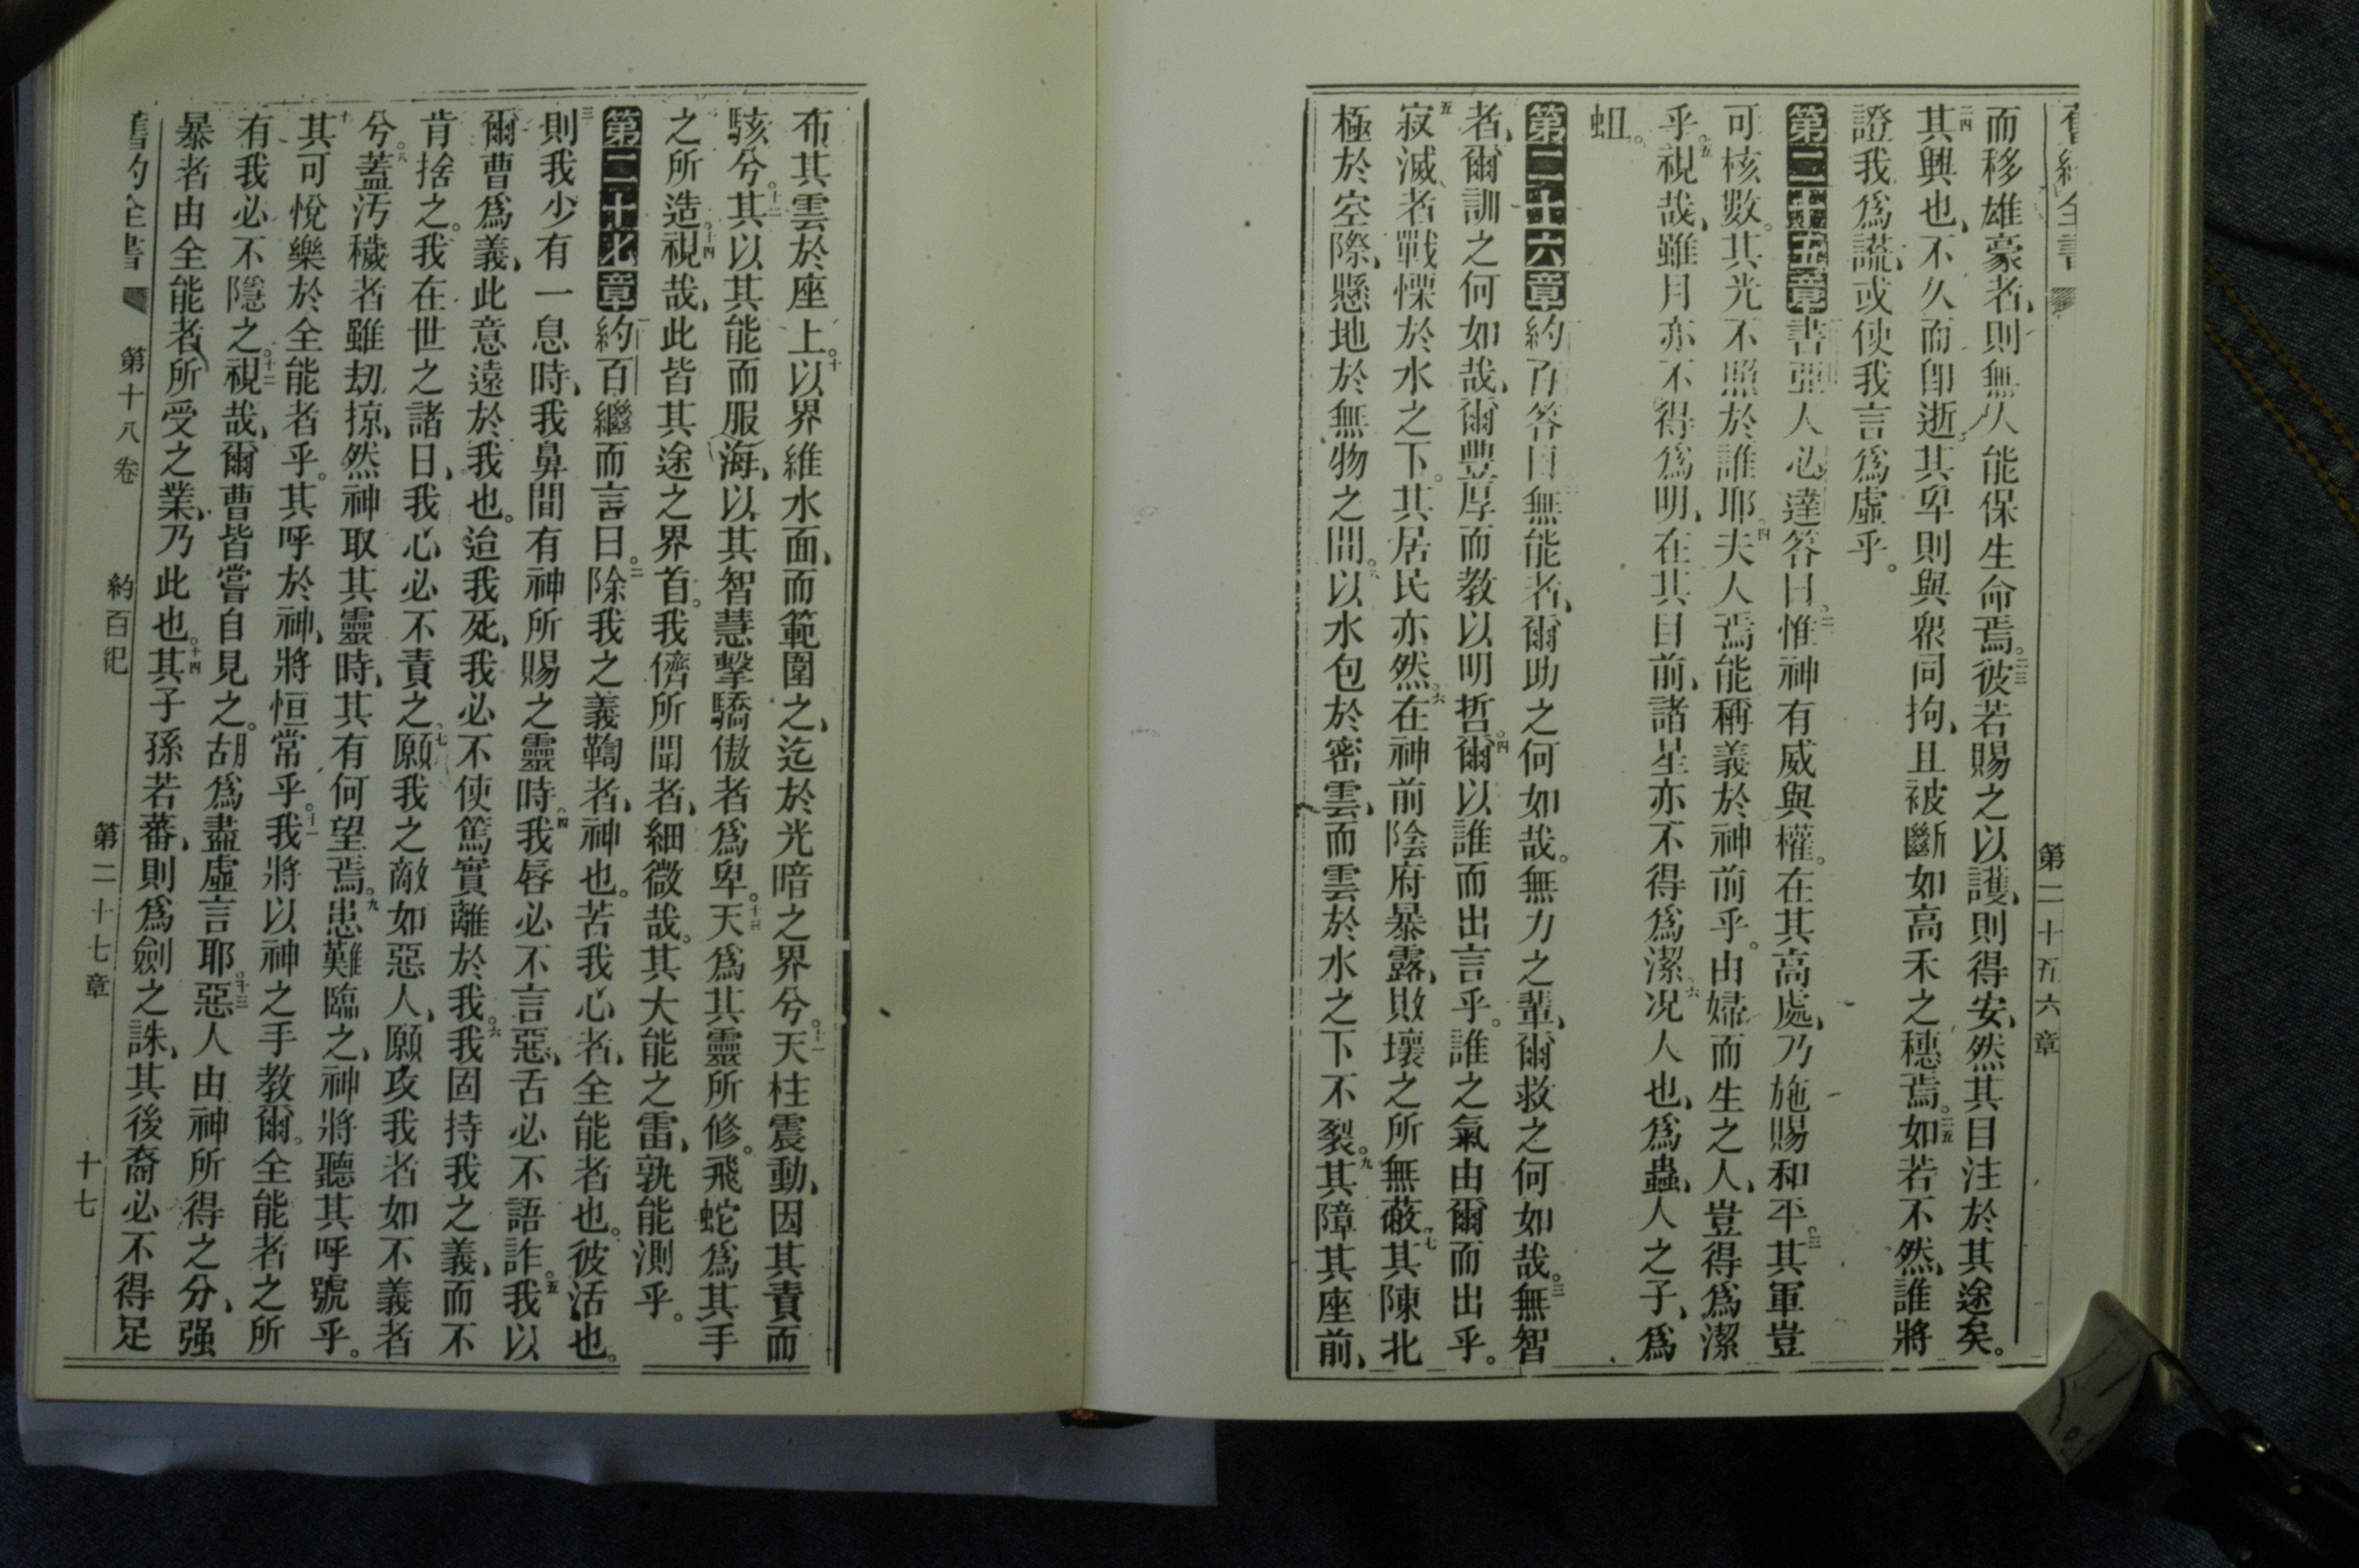 舊約全書
第二十五六章
而移雄豪者、則無人能保生命焉。二三彼若賜之以護、則得安、然其目注於其途矣。
二四其興也、不久而卽逝、其卑則與衆同拘、且被斷如高禾之穗焉。二五如若不然、誰將
證我爲謊、或使我言爲虛乎。
第二十五章 書亞人必達答曰、二惟神有威與權。在其高處、乃施賜和平。三其軍豈
可核數。其光不照於誰耶。四夫人焉能稱義於神前乎。由婦而生之人、豈得爲潔
乎。五視哉、雖月亦不得爲明、在其目前、諸星亦不得爲潔。六况人也、爲蟲、人之子、爲
蛆。
第二十六章 約百答曰、二無能者、爾助之何如哉。無力之輩、爾救之何如哉。三無智
者、爾訓之何如哉、爾豐厚而教以明哲。四爾以誰而出言乎。誰之氣由爾而出乎。
五寂滅者戰慄於水之下。其居民亦然。六在神前陰府暴露、敗壞之所無蔽。七其陳北
極於空際、懸地於無物之間。八以水包於密雲、而雲於水之下不裂。九其障其座前、
布其雲於座上。十以界維水面、而範圍之、迄於光暗之界兮。十一天柱震動、因其責而
駭兮。十二其以其能而服海、以其智慧擊驕傲者爲卑。十三天爲其靈所修。飛蛇爲其手
之所造。十四視哉、此皆其途之界首。我儕所聞者、細微哉。其大能之雷、孰能測乎。
第二十七章 一約百繼而言曰。二除我之義鞫者、神也。苦我心者、全能者也。彼活也。
三則我少有一息時、我鼻間有神所賜之靈時、四我唇必不言惡、舌必不語詐。五我以
爾曹爲義、此意遠於我也。迨我死、我必不使篤實離於我。六我固持我之義、而不
肯捨之。我在世之諸日、我心必不責之、七願我之敵如惡人、願攻我者如不義者
兮。八蓋汚穢者雖刧掠、然神取其靈時、其有何望焉。九患難臨之、神將聽其呼號乎。
十其可悅樂於全能者乎。其呼於神、將恒常乎。十一我將以神之手教爾。全能者之所
有我必不隱之。十二視哉、爾曹皆嘗自見之。胡爲盡虛言耶。十三惡人由神所得之分、强
暴者由全能者所受之業、乃此也。十四其子孫若蕃、則爲劍之誅、其後裔必不得足
舊約全書
第十八卷
約百紀
第二十七章
十七